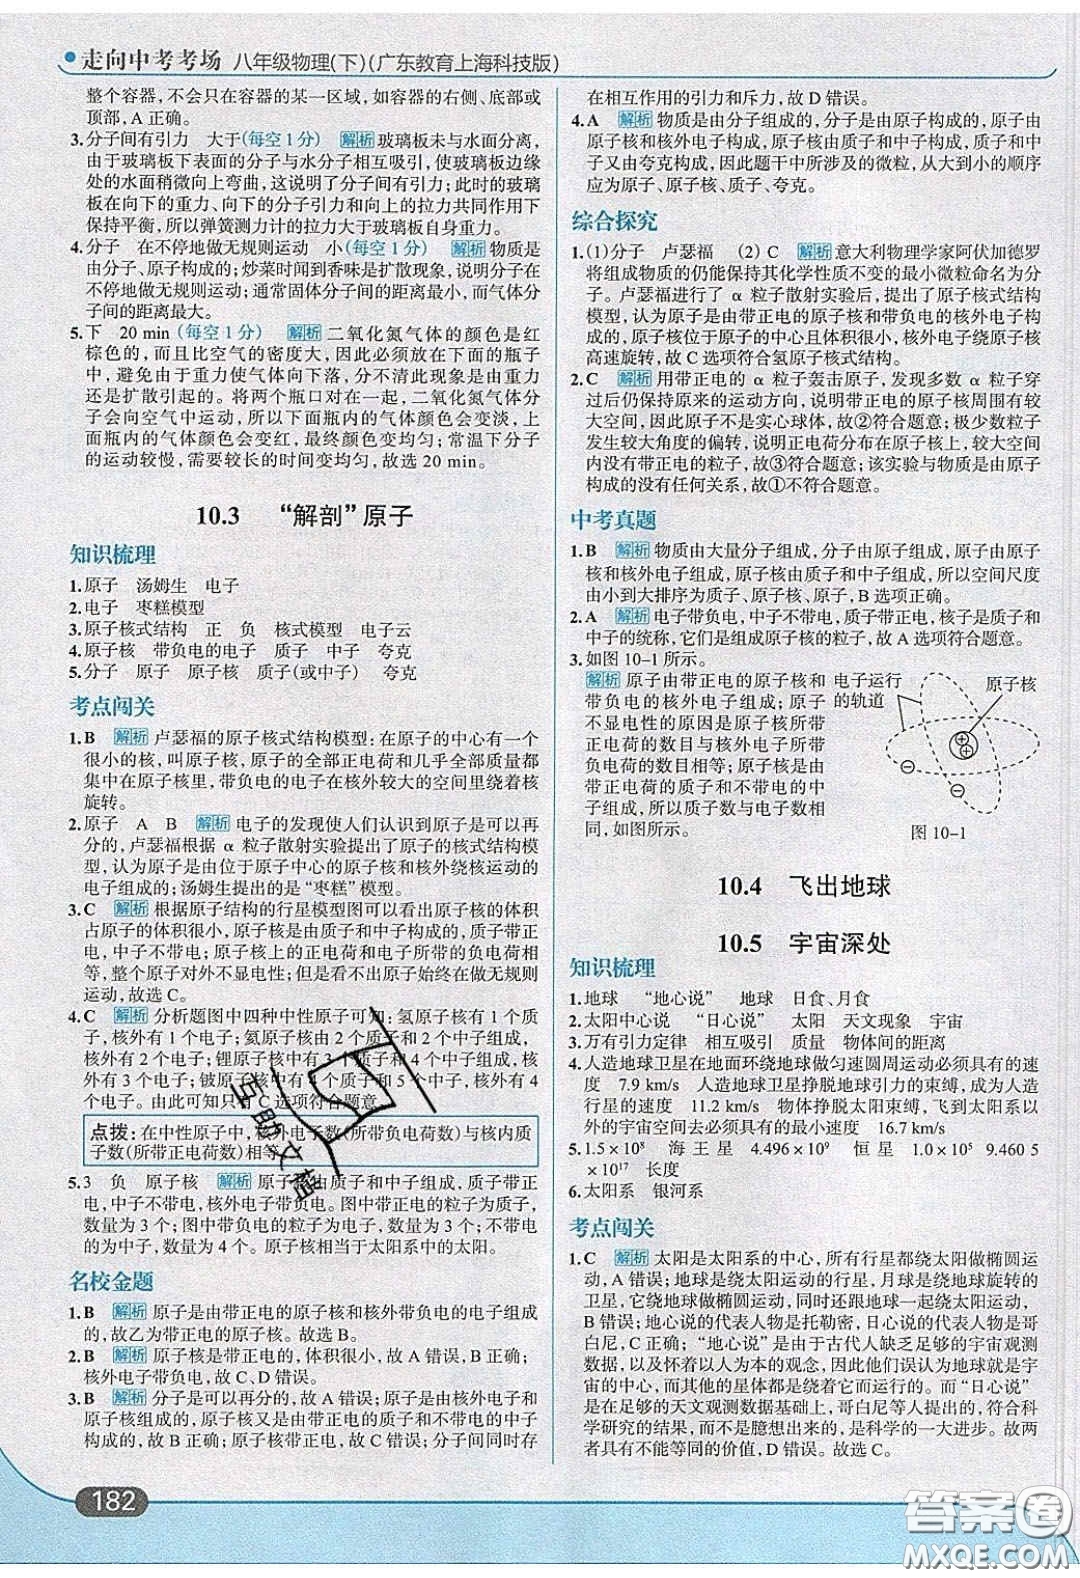 走向中考考场 八年级物理(下)(广东教育上海科技版)
整个容器,不会只在容器的某一区域,如容器的右侧、底部或
顶部,A 正确。
3.分子间有引力 大于(每空 1 分) 解析 玻璃板未与水面分离,
由于玻璃板下表面的分子与水分子相互吸引,使玻璃板边缘
处的水面稍微向上弯曲,这说明了分子间有引力;此时的玻璃
板在向下的重力、向下的分子引力和向上的拉力共同作用下
保持平衡,所以弹簧测力计的拉力大于玻璃板自身重力。
4.分子 在不停地做无规则运动 小(每空 1 分) 解析 物质是
由分子、原子构成的;炒菜时闻到香味是扩散现象,说明分子在
不停地做无规则运动;通常固体分子间的距离最小,而气体分
子间的距离最大。
5.下 20 min (每空 1 分) 解析 二氧化氮气体的颜色是红
棕色的,而且比空气的密度大,因此必须放在下面的瓶子
中,避免由于重力使气体向下落,分不清此现象是由重力
还是扩散引起的。将两个瓶口对在一起,二氧化氮气体分
子会向空气中运动,所以下面瓶内的气体颜色会变淡,上
面瓶内的气体颜色会变红,最终颜色变均匀;常温下分子
的运动较慢,需要较长的时间变均匀,故选 20 min。
10.3 “解剖”原子
知识梳理
1.原子 汤姆生 电子
2.电子 枣糕模型
3.原子核式结构 正 负 核式模型 电子云
4.原子核 带负电的电子 质子 中子 夸克
5.分子 原子 原子核 质子(或中子) 夸克
考点闯关
1.B 解析 卢瑟福的原子核式结构模型:在原子的中心有一个
很小的核,叫原子核,原子的全部正电荷和几乎全部质量都
集中在原子核里,带负电的电子在核外较大的空间里绕着核
旋转。
2.原子 A B 解析 电子的发现使人们认识到原子是可以再
分的,卢瑟福根据 α 粒子散射实验提出了原子的核式结构模
型,认为原子是由位于原子中心的原子核和核外绕核运动的
电子组成的;汤姆生提出的是“枣糕”模型。
3.C 解析 根据原子结构的行星模型图可以看出原子核的体积
占原子的体积非常小,原子核是由质子和中子构成的,质子带正
电,中子不带电;原子核上的正电荷和电子所带的负电荷相
等,整个原子对外不显电性;看不出原子始终在做无规则
运动,故选 C。
4.C 解析 分析题图中四种中性原子可知:氢原子核有 1 个质
子,核外有 1 个电子;氦原子核由 2 个质子和 2 个中子组成,
核外有 2 个电子;锂原子核中有 3 个质子和 4 个中子组成,核
外有 3 个电子;铍原子核中有 4 个质子和 5 个中子,核外有 4
个电子。由此可知只有 C 选项符合题意。
点拨:在中性原子中,核外电子数(所带负电荷数)与核内质
子数(所带正电荷数)相等。
5.3 负 原子核 解析 原子核由质子和中子组成,质子带正
电,中子不带电,核外电子带负电。图中带正电的粒子为质子,
数量为 3 个;图中带负电的粒子为电子,数量为 3 个;不带电
的为中子,数量为 4 个。原子核相当于太阳系中的太阳。
名校金题
1.B 解析 原子是由带正电的原子核和核外带负电的电子组成
的,故乙为带正电的原子核。故选 B。
2.B 解析 原子核是带正电的,体积很小,故 A 错误,B 正确;
核外电子带负电,故 C、D 错误。
3.B 解析 分子是可以再分的,故 A 错误;原子是由核外电子和
原子核组成的,原子核又是由带正电的质子和不带电的中子
构成的,故 B 正确;原子核带正电,故 C 错误;分子间同时存
在相互作用的引力和斥力,故 D 错误。
4.A 解析 物质是由分子组成的,分子是由原子构成的,原子由
原子核和核外电子构成,原子核由质子和中子构成,质子和中
子又由夸克构成,因此题干中所涉及的微粒,从大到小的顺序
应为原子、原子核、质子、夸克。
综合探究
1.(1)分子 卢瑟福 (2) C 解析 意大利物理学家阿伏加德罗
将组成物质的仍能保持其化学性质不变的最小微粒命名为分
子。卢瑟福进行了 α 粒子散射实验后,提出了原子核式结构模
型,认为原子是由带正电的原子核和带负电的核外电子构
成的,原子核位于原子的中心且体积很小,核外电子绕原子核
高速旋转,故 C 选项符合氢原子核式结构。
2.C 解析 用带正电的 α 粒子轰击原子,发现多数 α 粒子穿
过后仍保持原来的运动方向,说明带正电的原子核周围有较
大空间,因此原子不是实心球体,故②符合题意;极少数粒子
发生较大角度的偏转,说明正电荷分布在原子核上,较大空间
内没有带正电的粒子,故③符合题意;该实验与物质是由原子
构成的没有任何关系,故①不符合题意。
中考真题
1.B 解析 物质由大量分子组成,分子由原子组成,原子由原子
核和核外电子组成,原子核由质子和中子组成,所以空间尺度
由小到大排序为质子、原子核、原子,B 选项正确。
2.A 解析 电子带负电,中子不带电,质子带正电,核子是质子和
中子的统称,它们是组成原子核的粒子,故 A 选项符合题意。
3.如图 10-1 所示。
解析 原子由带正电的原子核和
带负电的核外电子组成;原子
不显电性的原因是原子核所带
正电荷的数目与核外电子所带
负电荷的数目相等;原子核是由
带正电荷的质子和不带电的中
子组成,所以质子数与电子数相
同,如图所示。
电子运行
的轨道
原子核
图 10-1
10.4 飞出地球
10.5 宇宙深处
知识梳理
1.地球 “地心说” 地球 日食、月食
2.太阳中心说 “日心说” 太阳 天文现象 宇宙
3.万有引力定律 相互吸引 质量 物体间的距离
4.人造地球卫星在地面环绕地球做匀速圆周运动必须具有的速
度 7.9 km/s 人造地球卫星挣脱地球引力的束缚,成为人造
行星的速度 11.2 km/s 物体挣脱太阳束缚,飞到太阳系以
外的宇宙空间去必须具有的最小速度 16.7 km/s
5.1.5 × 10⁸ 海王星 4.496 × 10⁹ 恒星 1.0 × 10⁵ 9.460 5
× 10¹⁷ 长度
6.太阳系 银河系
考点闯关
1.C 解析 太阳是太阳系的中心,所有行星都绕太阳做椭圆运
动,A 错误;地球是绕太阳运动的行星,月球是绕地球旋转的
卫星,它绕地球做椭圆运动,同时还跟地球一起绕太阳运动,
B 错误;地心说的代表人物是托勒密,日心说的代表人物是哥
白尼,C 正确;“地心说”是由于古代人缺乏足够的宇宙观测
数据,以及怀着以人为本的观念,因此他们误认为地球就是宇
宙的中心,而其他的星体都是绕着它而运行的。而“日心说”
是在足够的天文观测数据基础上,哥白尼等人提出的,符合科
学研究的结果,而不是臆想出来的,是科学的一大进步。故两
者具有不能等同的价值,D 错误。故选 C。
182
互助文档
答案圈
MXQE.COM